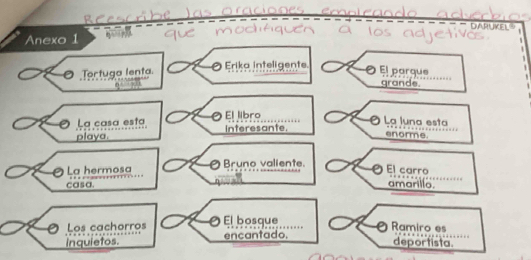 Reescribe las oraciones empleando adverbios
DARUKEL®
Anexo 1
que modifiquen a los adjetivos.
Tortuga lenta.
Erika inteligente.
El parque
grande.
La casa esta
playa.
El libro
interesante.
La luna esta
enorme.
La hermosa
casa.
Bruno valiente.
El carro
amarillo.
Los cachorros
inquietos.
El bosque
encantado.
Ramiro es
deportista.